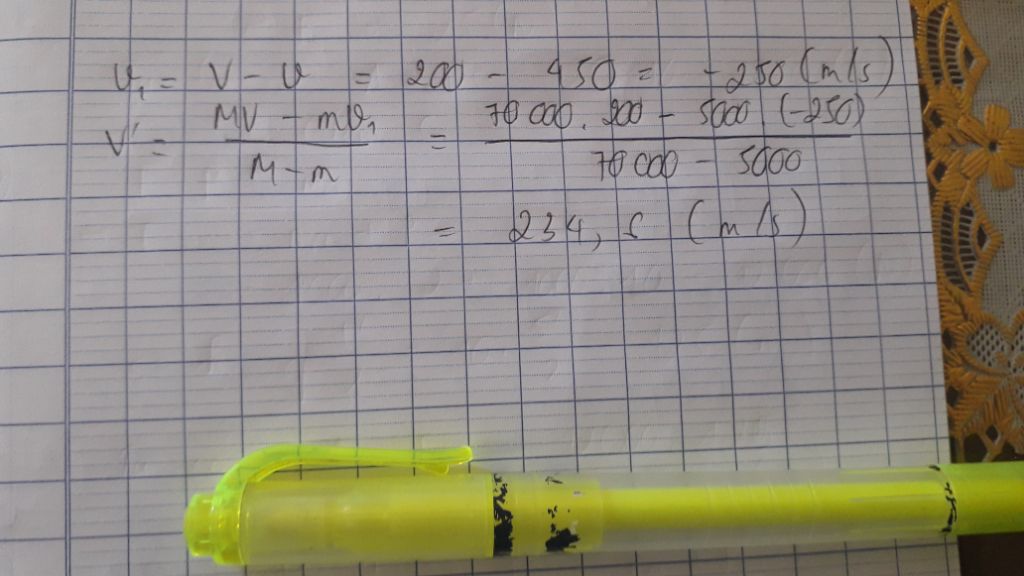 v₁ = V - v = 200 - 450 = -250 (m/s)
V' = \frac{MV - mv₁}{M - m} = \frac{70 000 . 200 - 5000 (-250)}{70 000 - 5000}
= 234,6 (m/s)